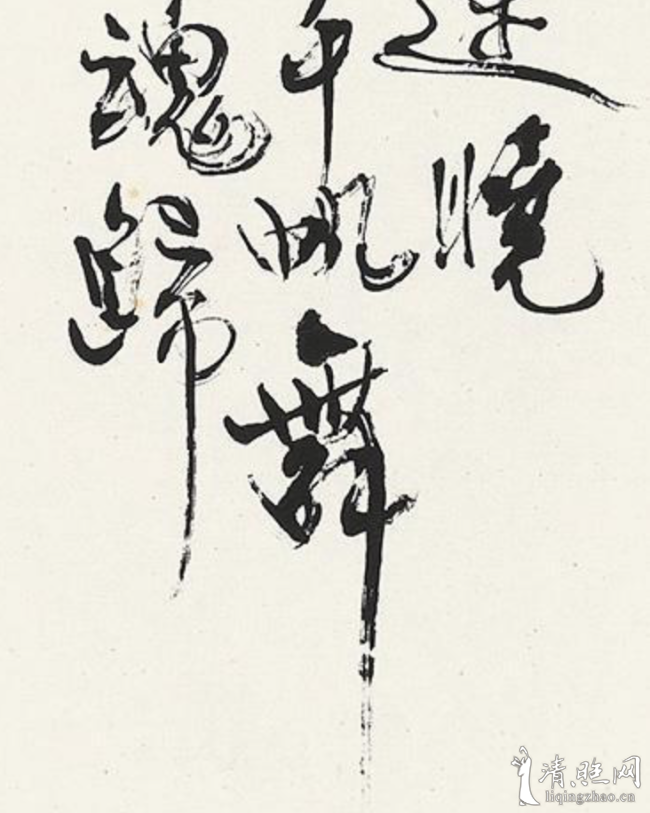 連曉
千帆舞
魂歸
清旺网
liqingzhao.cn